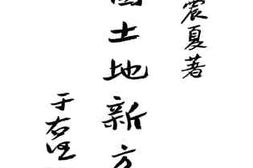 震夏著
土地新方
于右任